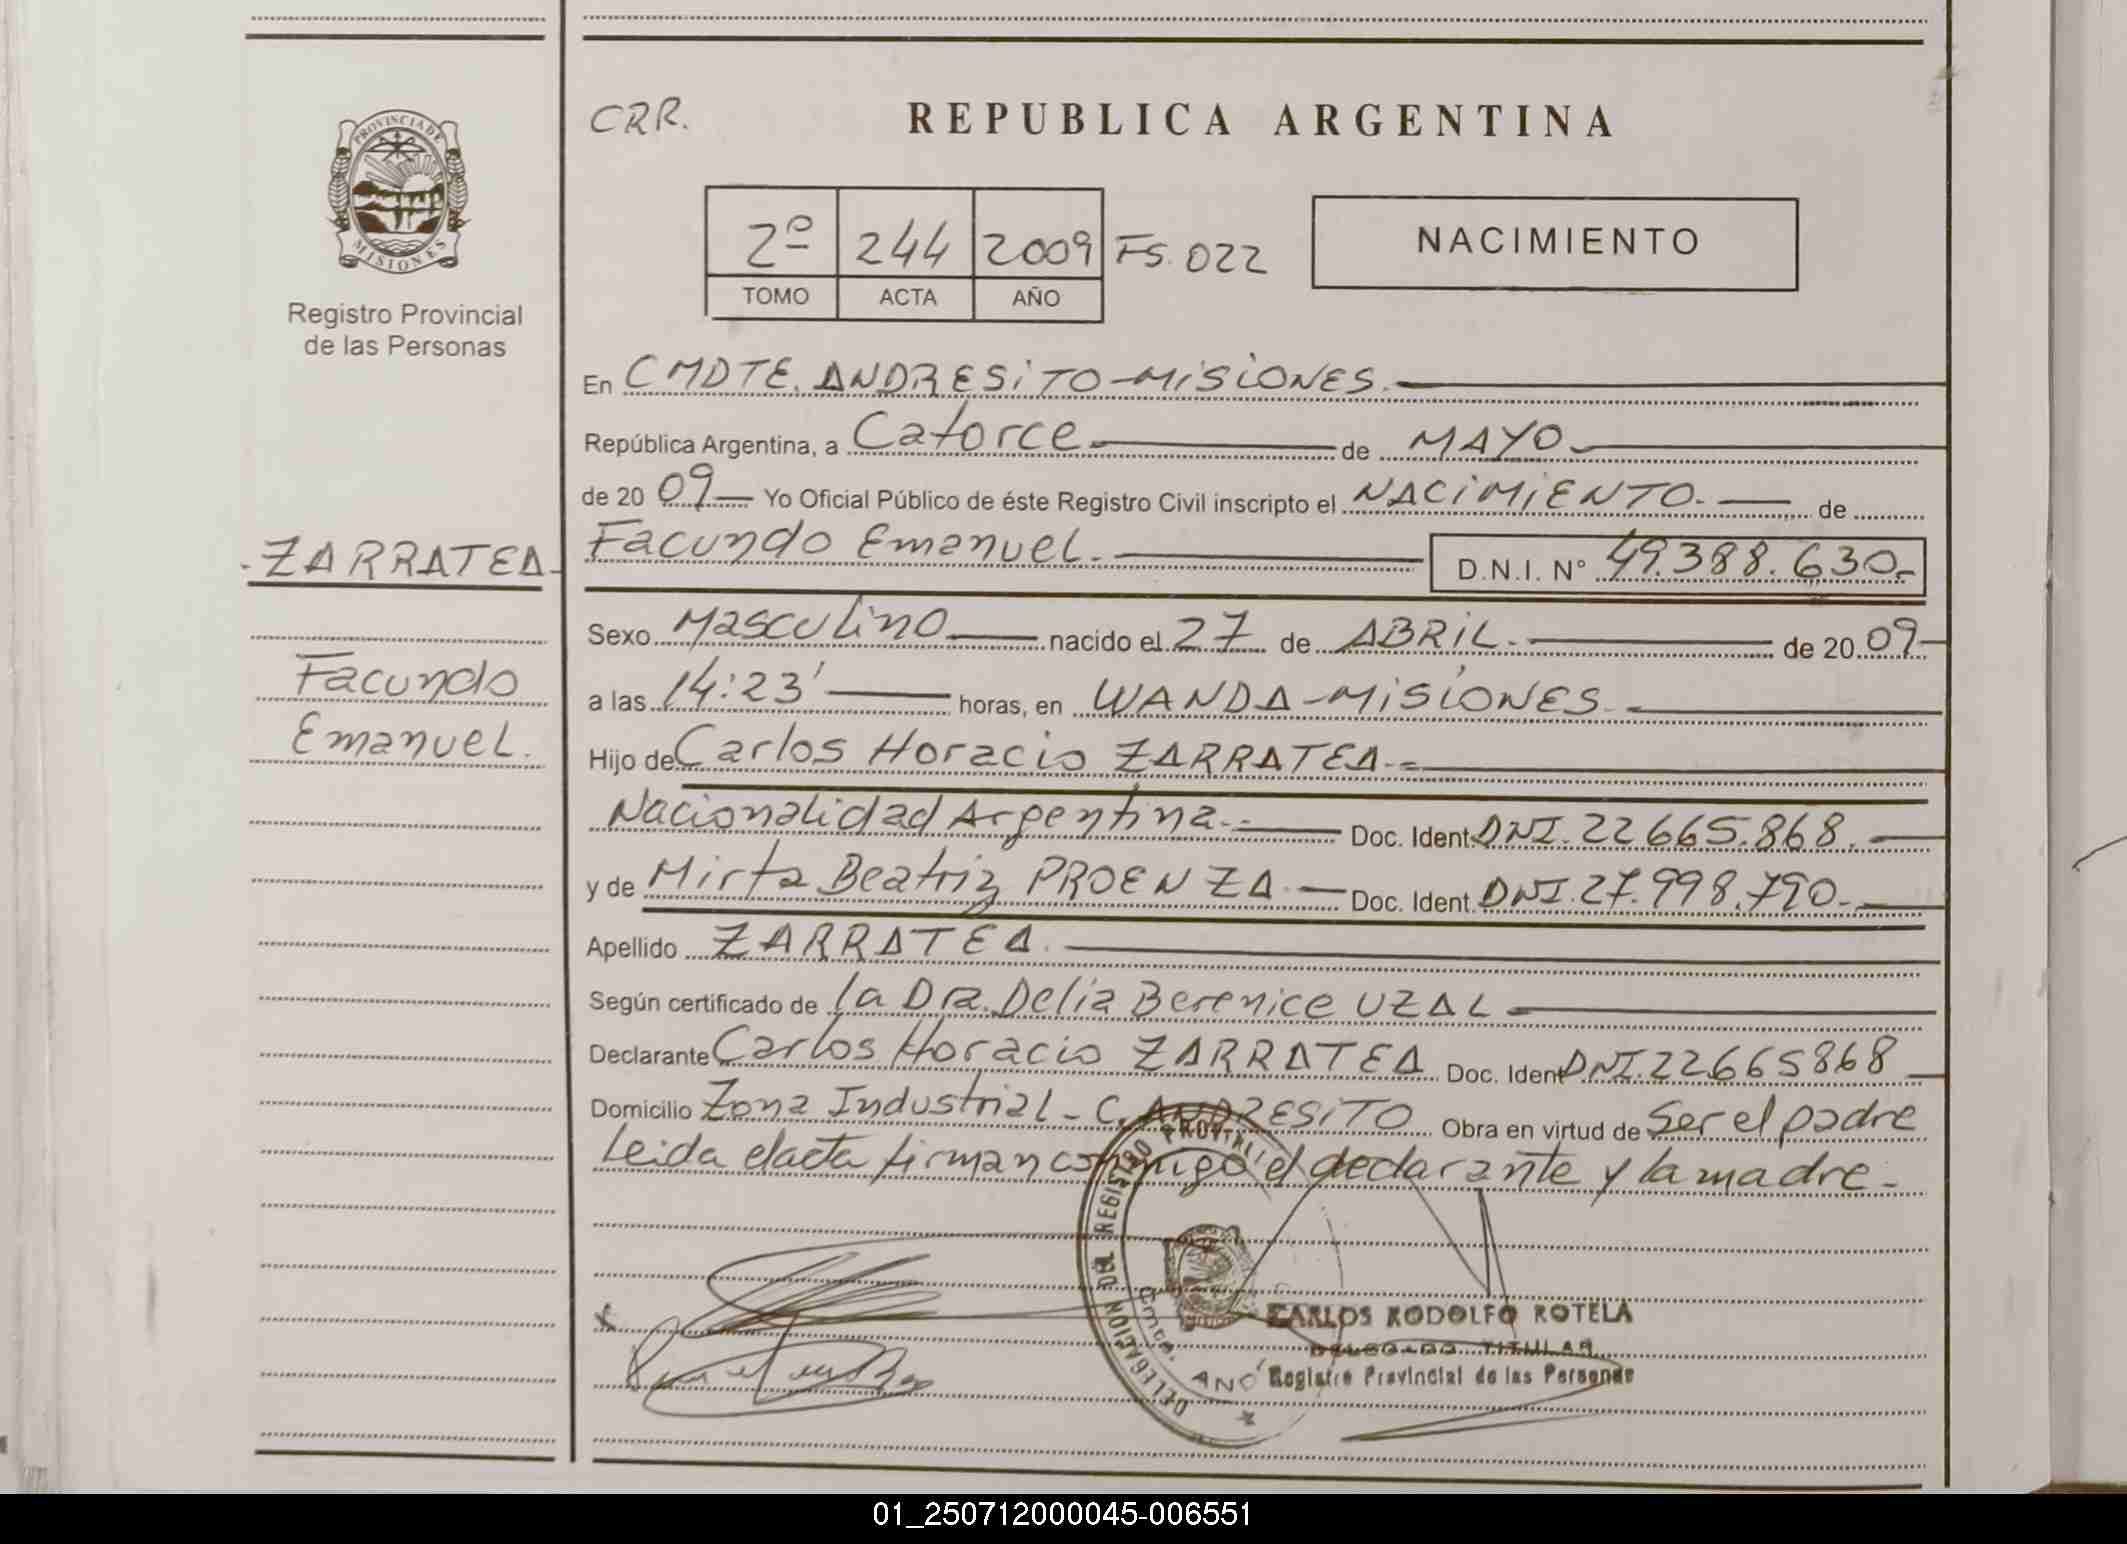 PROVINCIA DE
MISIONES
Registro Provincial
de las Personas
ZARRATEA
Facundo
Emanuel.
CRR.
REPUBLICA ARGENTINA
2º 244 2009 FS. 022
TOMO ACTA AÑO
NACIMIENTO
En CMDTE. ANDRESiTO-MiSiONES.
República Argentina, a Catorce de MAYO
de 2009 Yo Oficial Público de éste Registro Civil inscripto el NACiMiENTO. de
Facundo Emanuel. D.N.I. Nº 49.388.630.-
Sexo Masculino nacido el 27 de ABRiL. de 2009
a las 14:23' horas, en WANDA-MiSiONES.
Hijo de Carlos Horacio ZARRATEA.-
Nacionalidad Argentina.- Doc. Ident. DNI. 22665.868.
y de Mirta Beatriz PROENZA.- Doc. Ident. DNI. 27.998.790.-
Apellido ZARRATEA.
Según certificado de la Dra. Delia Berenice UZAL
Declarante Carlos Horacio ZARRATEA Doc. Ident DNI. 22665868
Domicilio Zona Industrial - C. ANDRESiTO Obra en virtud de Ser el padre
Leida el acta firman conmigo el declarante y la madre.
DELEGACION DEL REGISTRO PROVINCIAL
CARLOS RODOLFO ROTELA
DELEGADO TITULAR
Registro Provincial de las Personas
01_250712000045-006551